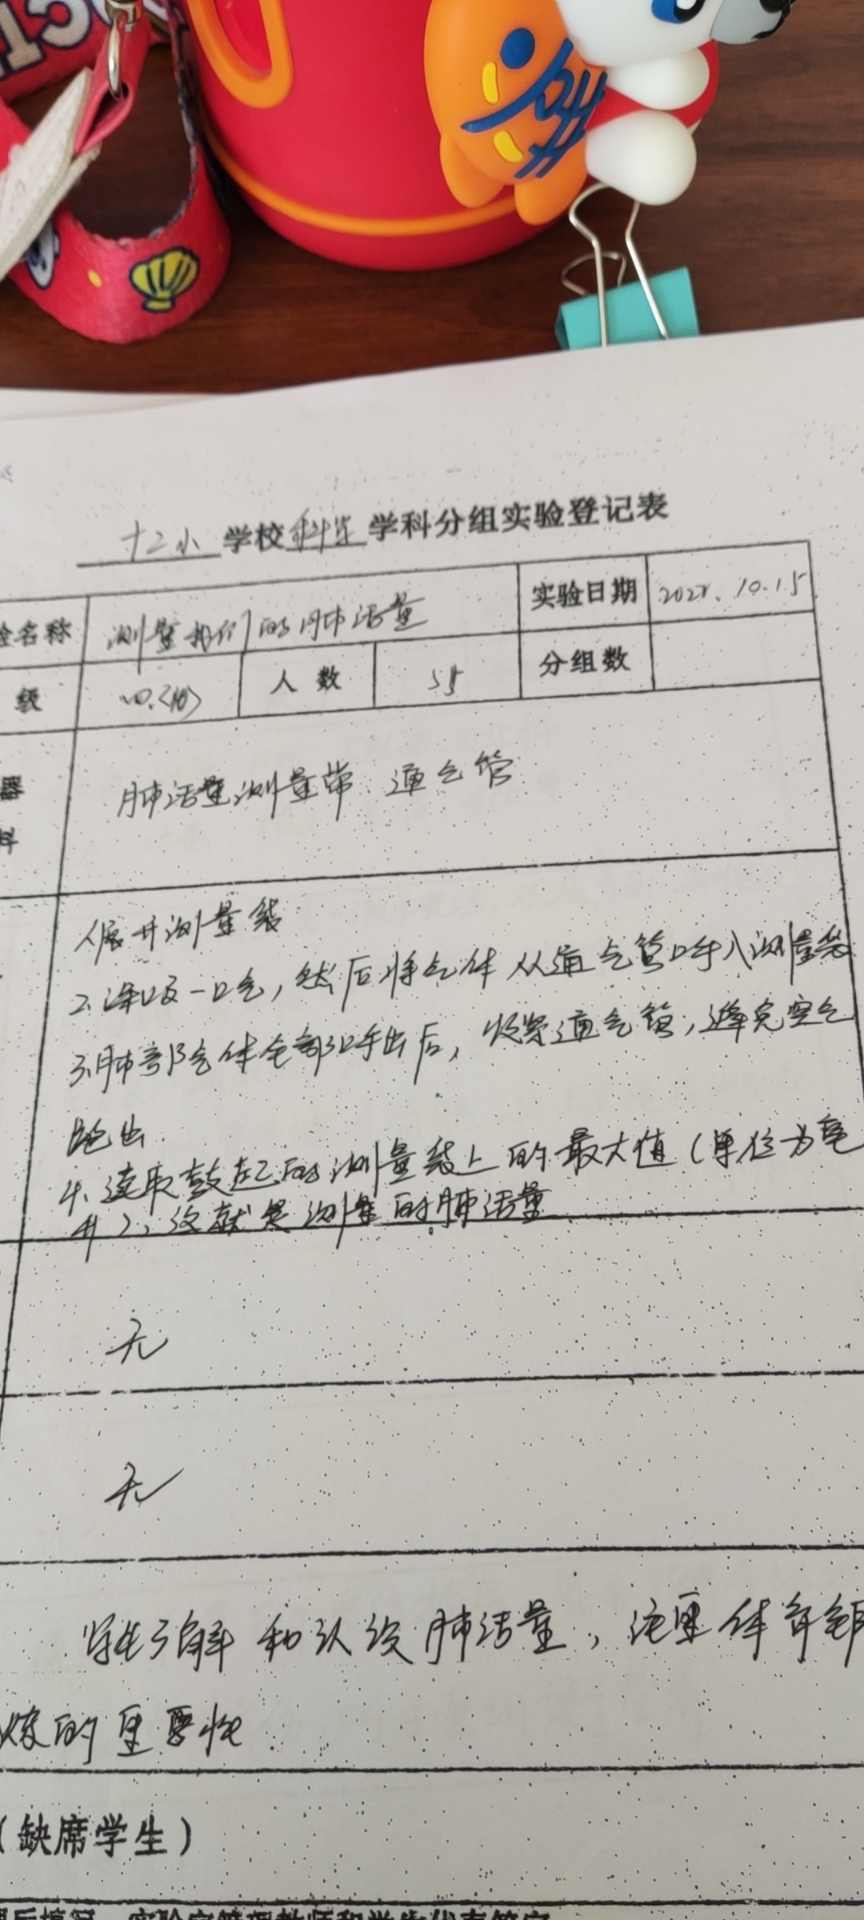 十二小 学校 科学 学科分组实验登记表
验名称 测量我们的肺活量 实验日期 10.15
级 四.〈10〉 人数 55 分组数
器
料
肺活量测量带 通气管
1.展开测量袋
2.深吸一口气，然后将气体从通气管呼入测量袋
3.肺部气体全部呼出后，收紧通气管，避免空气
跑出
4.读取鼓起的测量袋上的最大值（单位为毫
升），这就是测量的肺活量
无
无
学生了解和认识肺活量，注重体育锻
炼的重要性
（缺席学生）
课后填写，实验室管理教师和学生代表签字